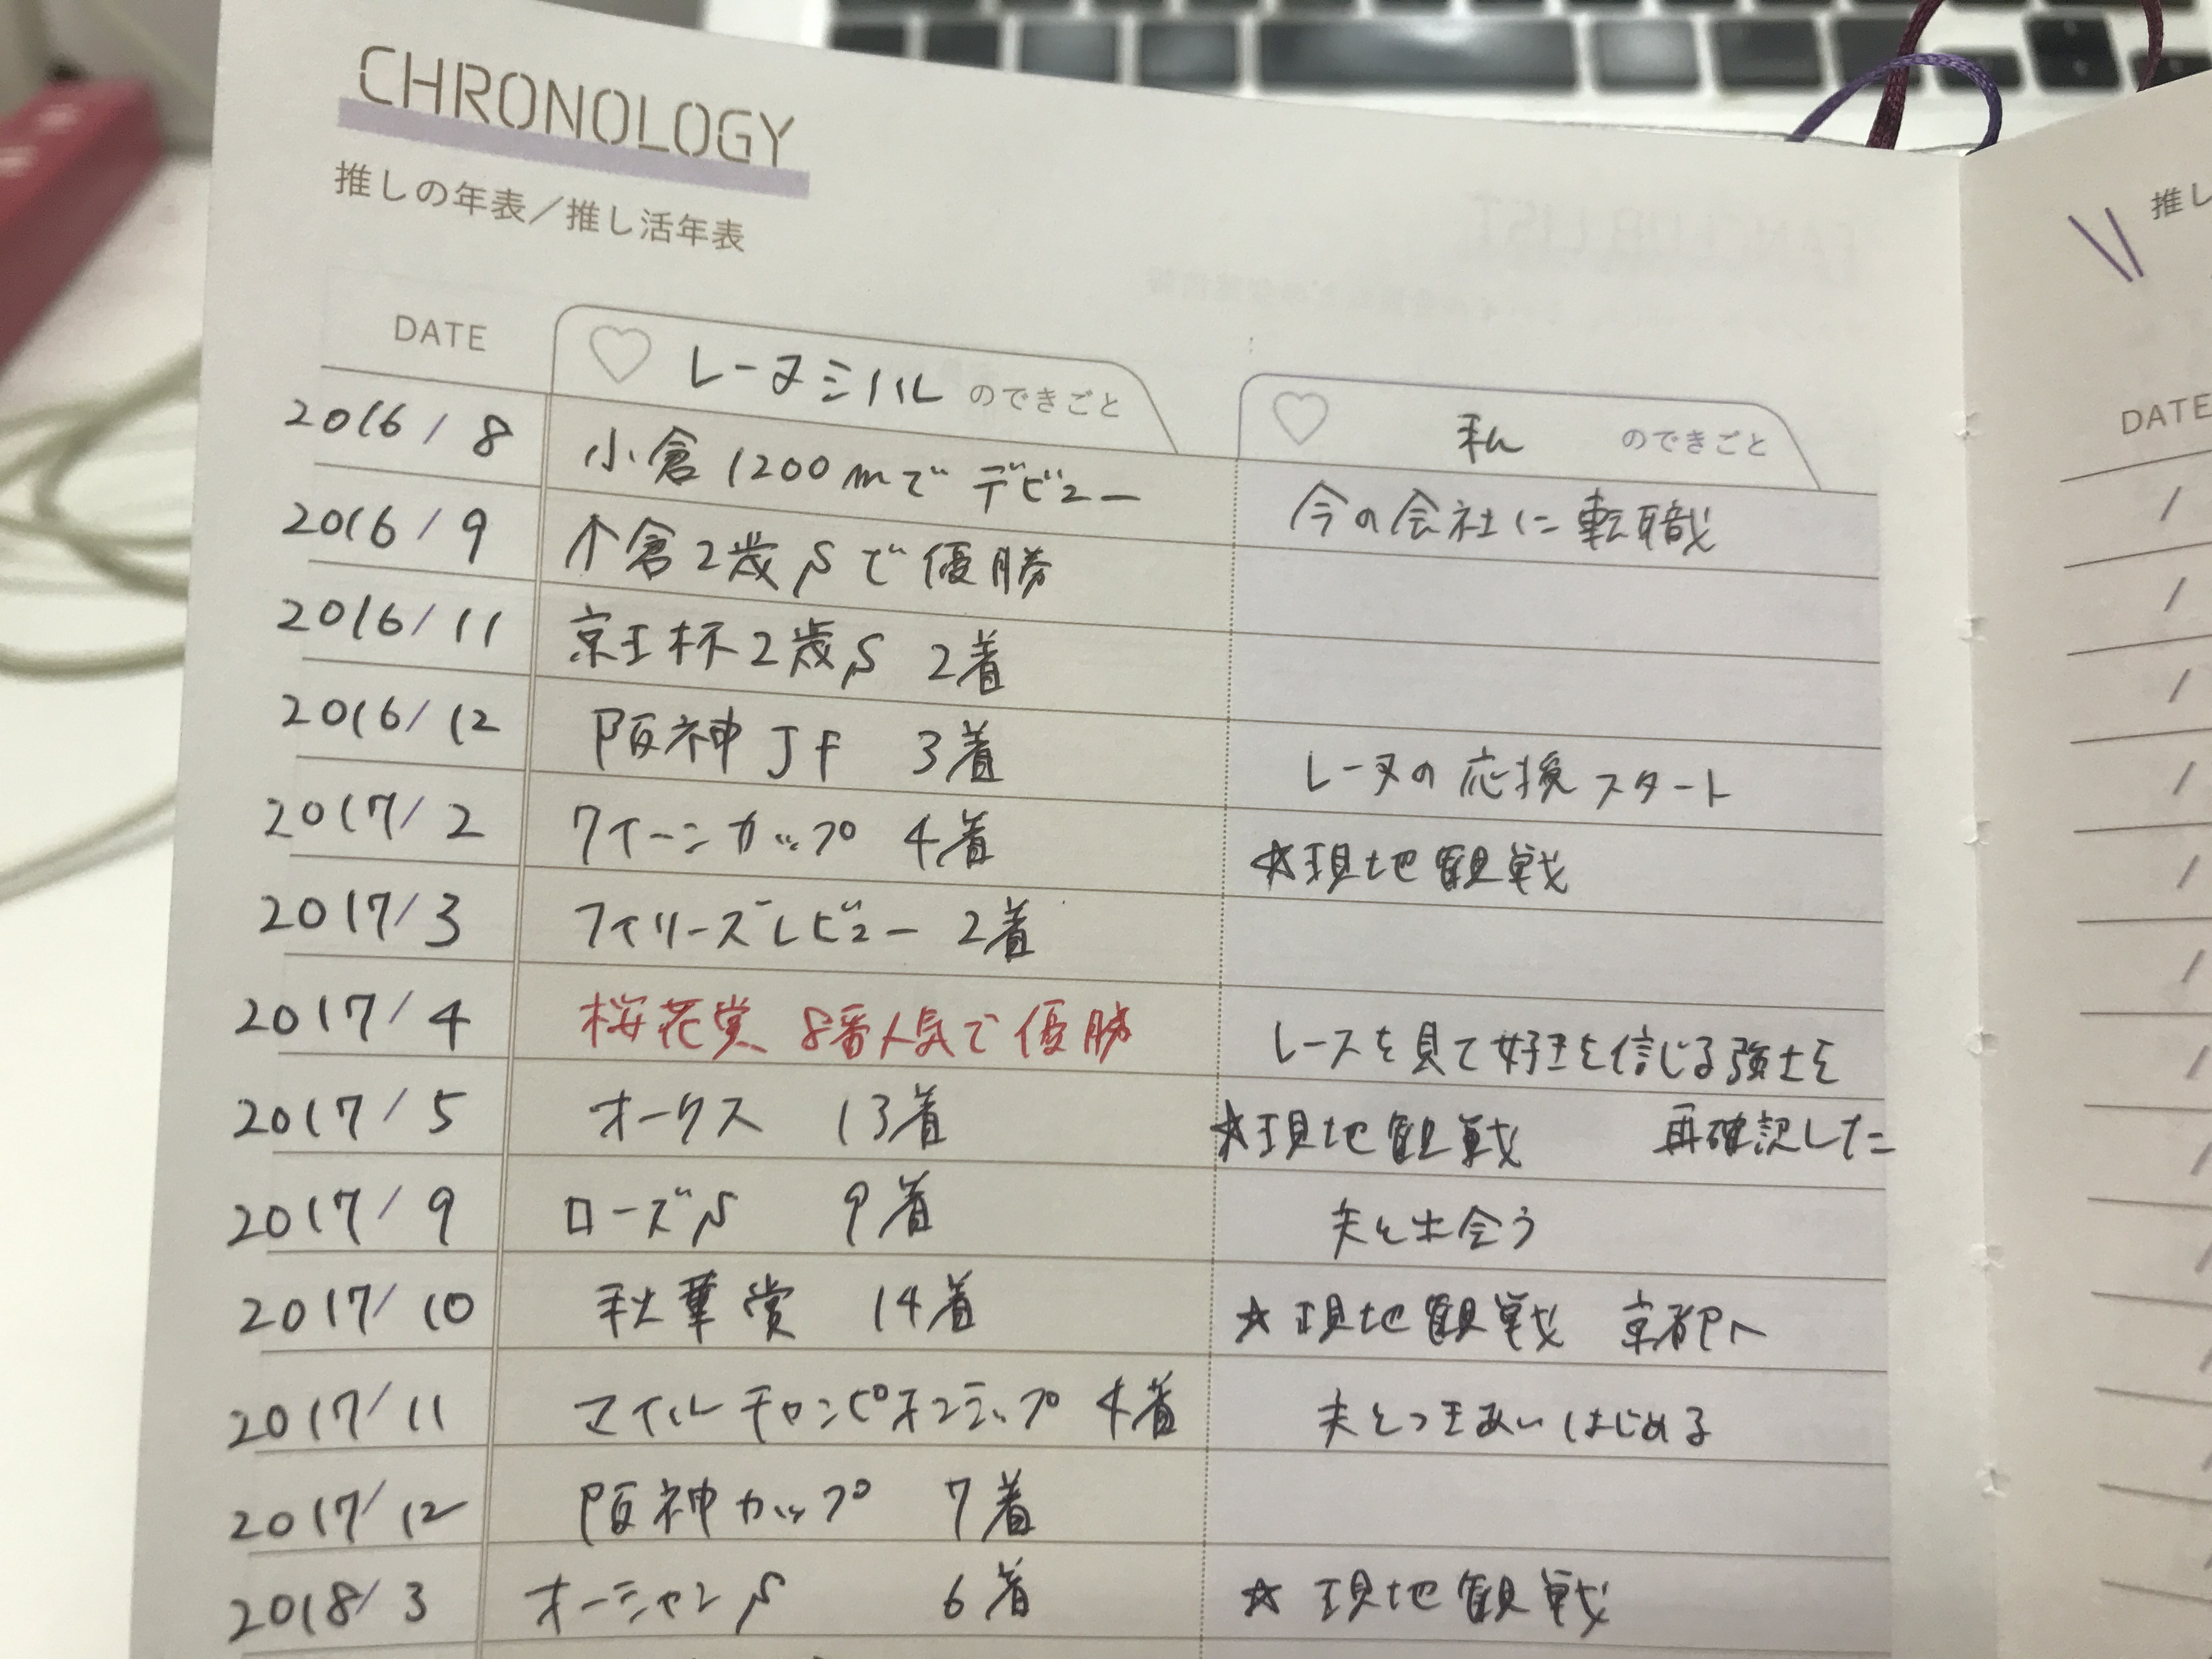 CHRONOLOGY
推しの年表／推し活年表
DATE
レーヌミノル のできごと
私 のできごと
2016/8 小倉1200mでデビュー 今の会社に転職
2016/9 小倉2歳Sで優勝
2016/11 京王杯2歳S 2着
2016/12 阪神JF 3着 レーヌの応援スタート
2017/2 クイーンカップ 4着 ☆現地観戦
2017/3 フィリーズレビュー 2着
2017/4 桜花賞 8番人気で優勝 レースを見て好きを信じる強さを
2017/5 オークス 13着 ☆現地観戦 再確認した
2017/9 ローズS 9着 夫と出会う
2017/10 秋華賞 14着 ☆現地観戦 京都へ
2017/11 マイルチャンピオンシップ 4着 夫とつきあいはじめる
2017/12 阪神カップ 7着
2018/3 オーシャンS 6着 ☆現地観戦
推し
DATE
/
/
/
/
/
/
/
/
/
/
/
/